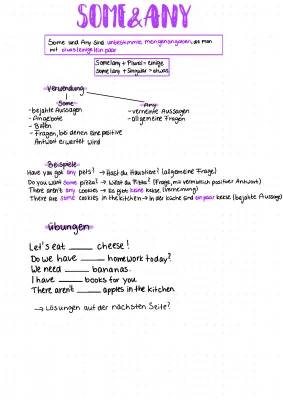 SOME & ANY
Some und Any sind unbestimmte mengenangaben, die man
mit etwas/einige/ein paar
Some/any + Plural = einige
some/any + Singular = etwas
Verwendung
Some
-bejahte Aussagen
-Angebote
-Bitten
-Fragen, bei denen eine positive
Antwort erwartet wird
Any
-verneinte Aussagen
-allgemeine Fragen
Beispiele
Have you got any pets? → Hast du Haustiere? (allgemeine Frage)
Do you want some pizza? → Willst du Pizza? (Frage, mit vermutlich positiver Antwort)
There aren't any cookies → Es gibt keine Kekse. (Verneinung)
There are some cookies in the kitchen → In der Küche sind ein paar Kekse (bejahte Aussage)
Übungen
Let's eat ____ cheese!
Do we have ____ homework today?
We need ____ bananas.
I have ____ books for you.
There aren't ____ apples in the kitchen
→ Lösungen auf der nächsten Seite!